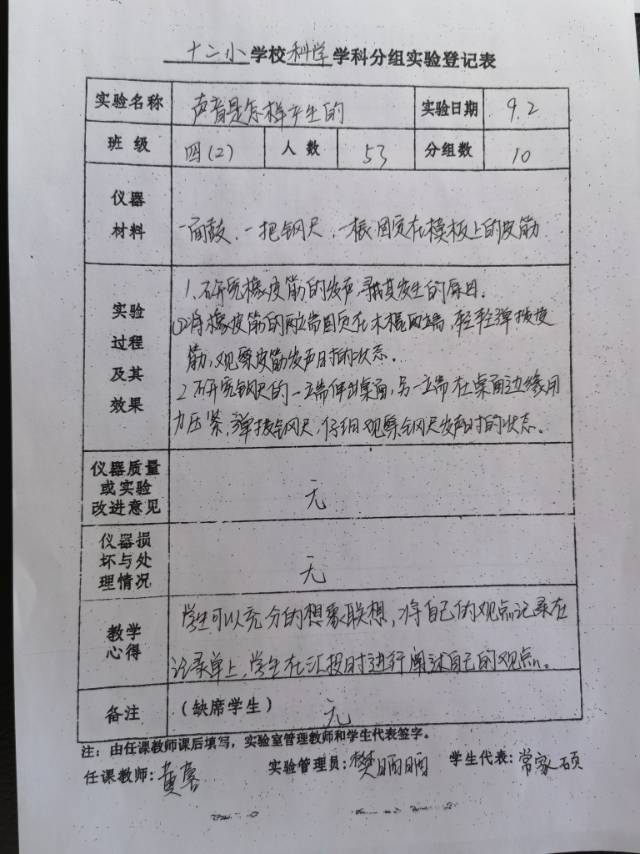 十二小学校科学学科分组实验登记表
实验名称 声音是怎样产生的 实验日期 9.2
班 级 四(2) 人 数 53 分组数 10
仪器
材料
一面鼓、一把钢尺、一根固定在模板上的皮筋
实验
过程
及其
效果
1、研究橡皮筋的发声,寻找其发生的原因。
(1)将橡皮筋的两端固定在木棍两端,轻轻弹拨皮
筋,观察皮筋发声时的状态。
2、研究钢尺的一端伸出桌面,另一端在桌面边缘用
力压紧,弹拨钢尺,仔细观察钢尺发声时的状态。
仪器质量
或实验
改进意见
无
仪器损
坏与处
理情况
无
教学
心得
学生可以充分的想象联想,将自己的观点记录在
记录单上,学生在汇报时进行阐述自己的观点。
备注 (缺席学生) 无
注:由任课教师课后填写,实验室管理教师和学生代表签字。
任课教师:黄 实验管理员:樊丽丽 学生代表:常家硕